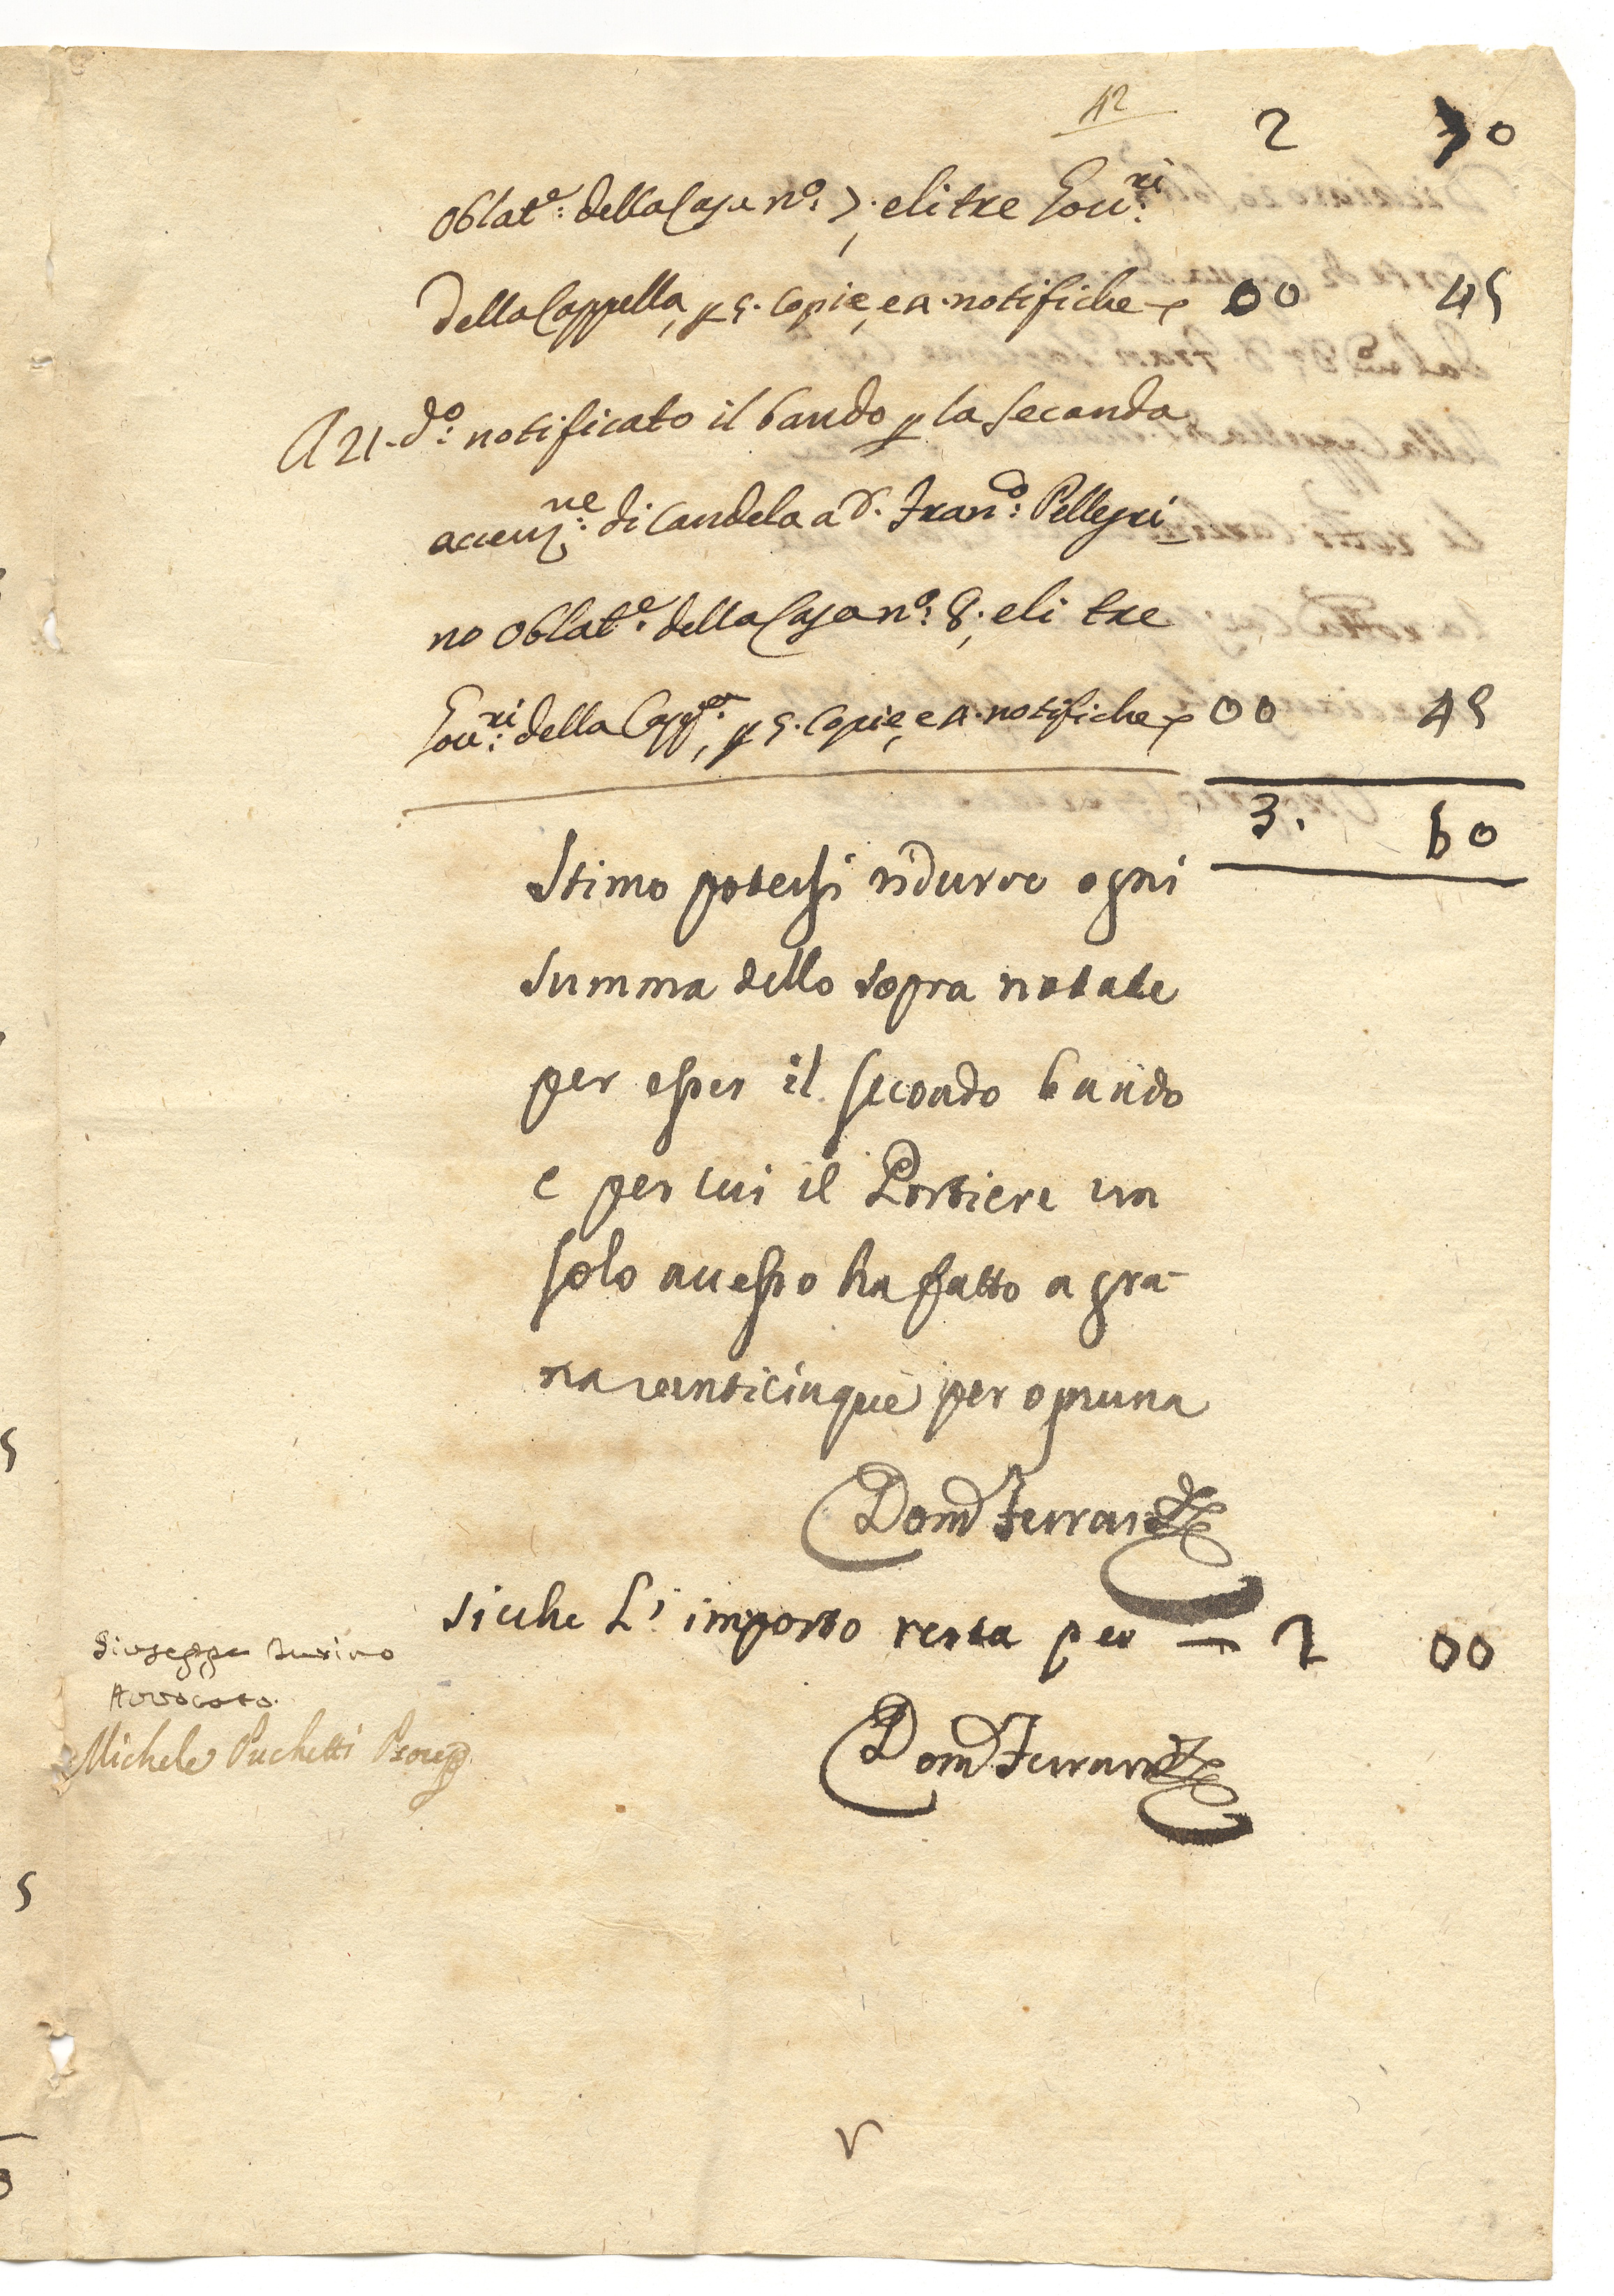 42
2 70
Oblat.e: della Casa n.o: 7: e li tre Gou:ri
della Cappella, p 5. copie, e 4. notifiche - 00 45
A 21. d.o: notificato il bando p la seconda
accenz:ne di Candela a D. Fran.co: Pellegri
no Oblat.e: della Casa n.o: 8: e li tre
Gou:ri della Capp.a, p 5. copie, e 4. notifiche - 00 45
3. 60
Stimo potersi ridurre ogni
summa delle sopra notate
per esser il secondo bando
e per cui il Portiere un
solo accesso ha fatto a gra-
na venticinque per ognuna
Dom.co Ferrar
sicche L'importo resta per — 2 00
Giuseppe
Avvocato
Dom.co Ferrar
Michele Puchetti